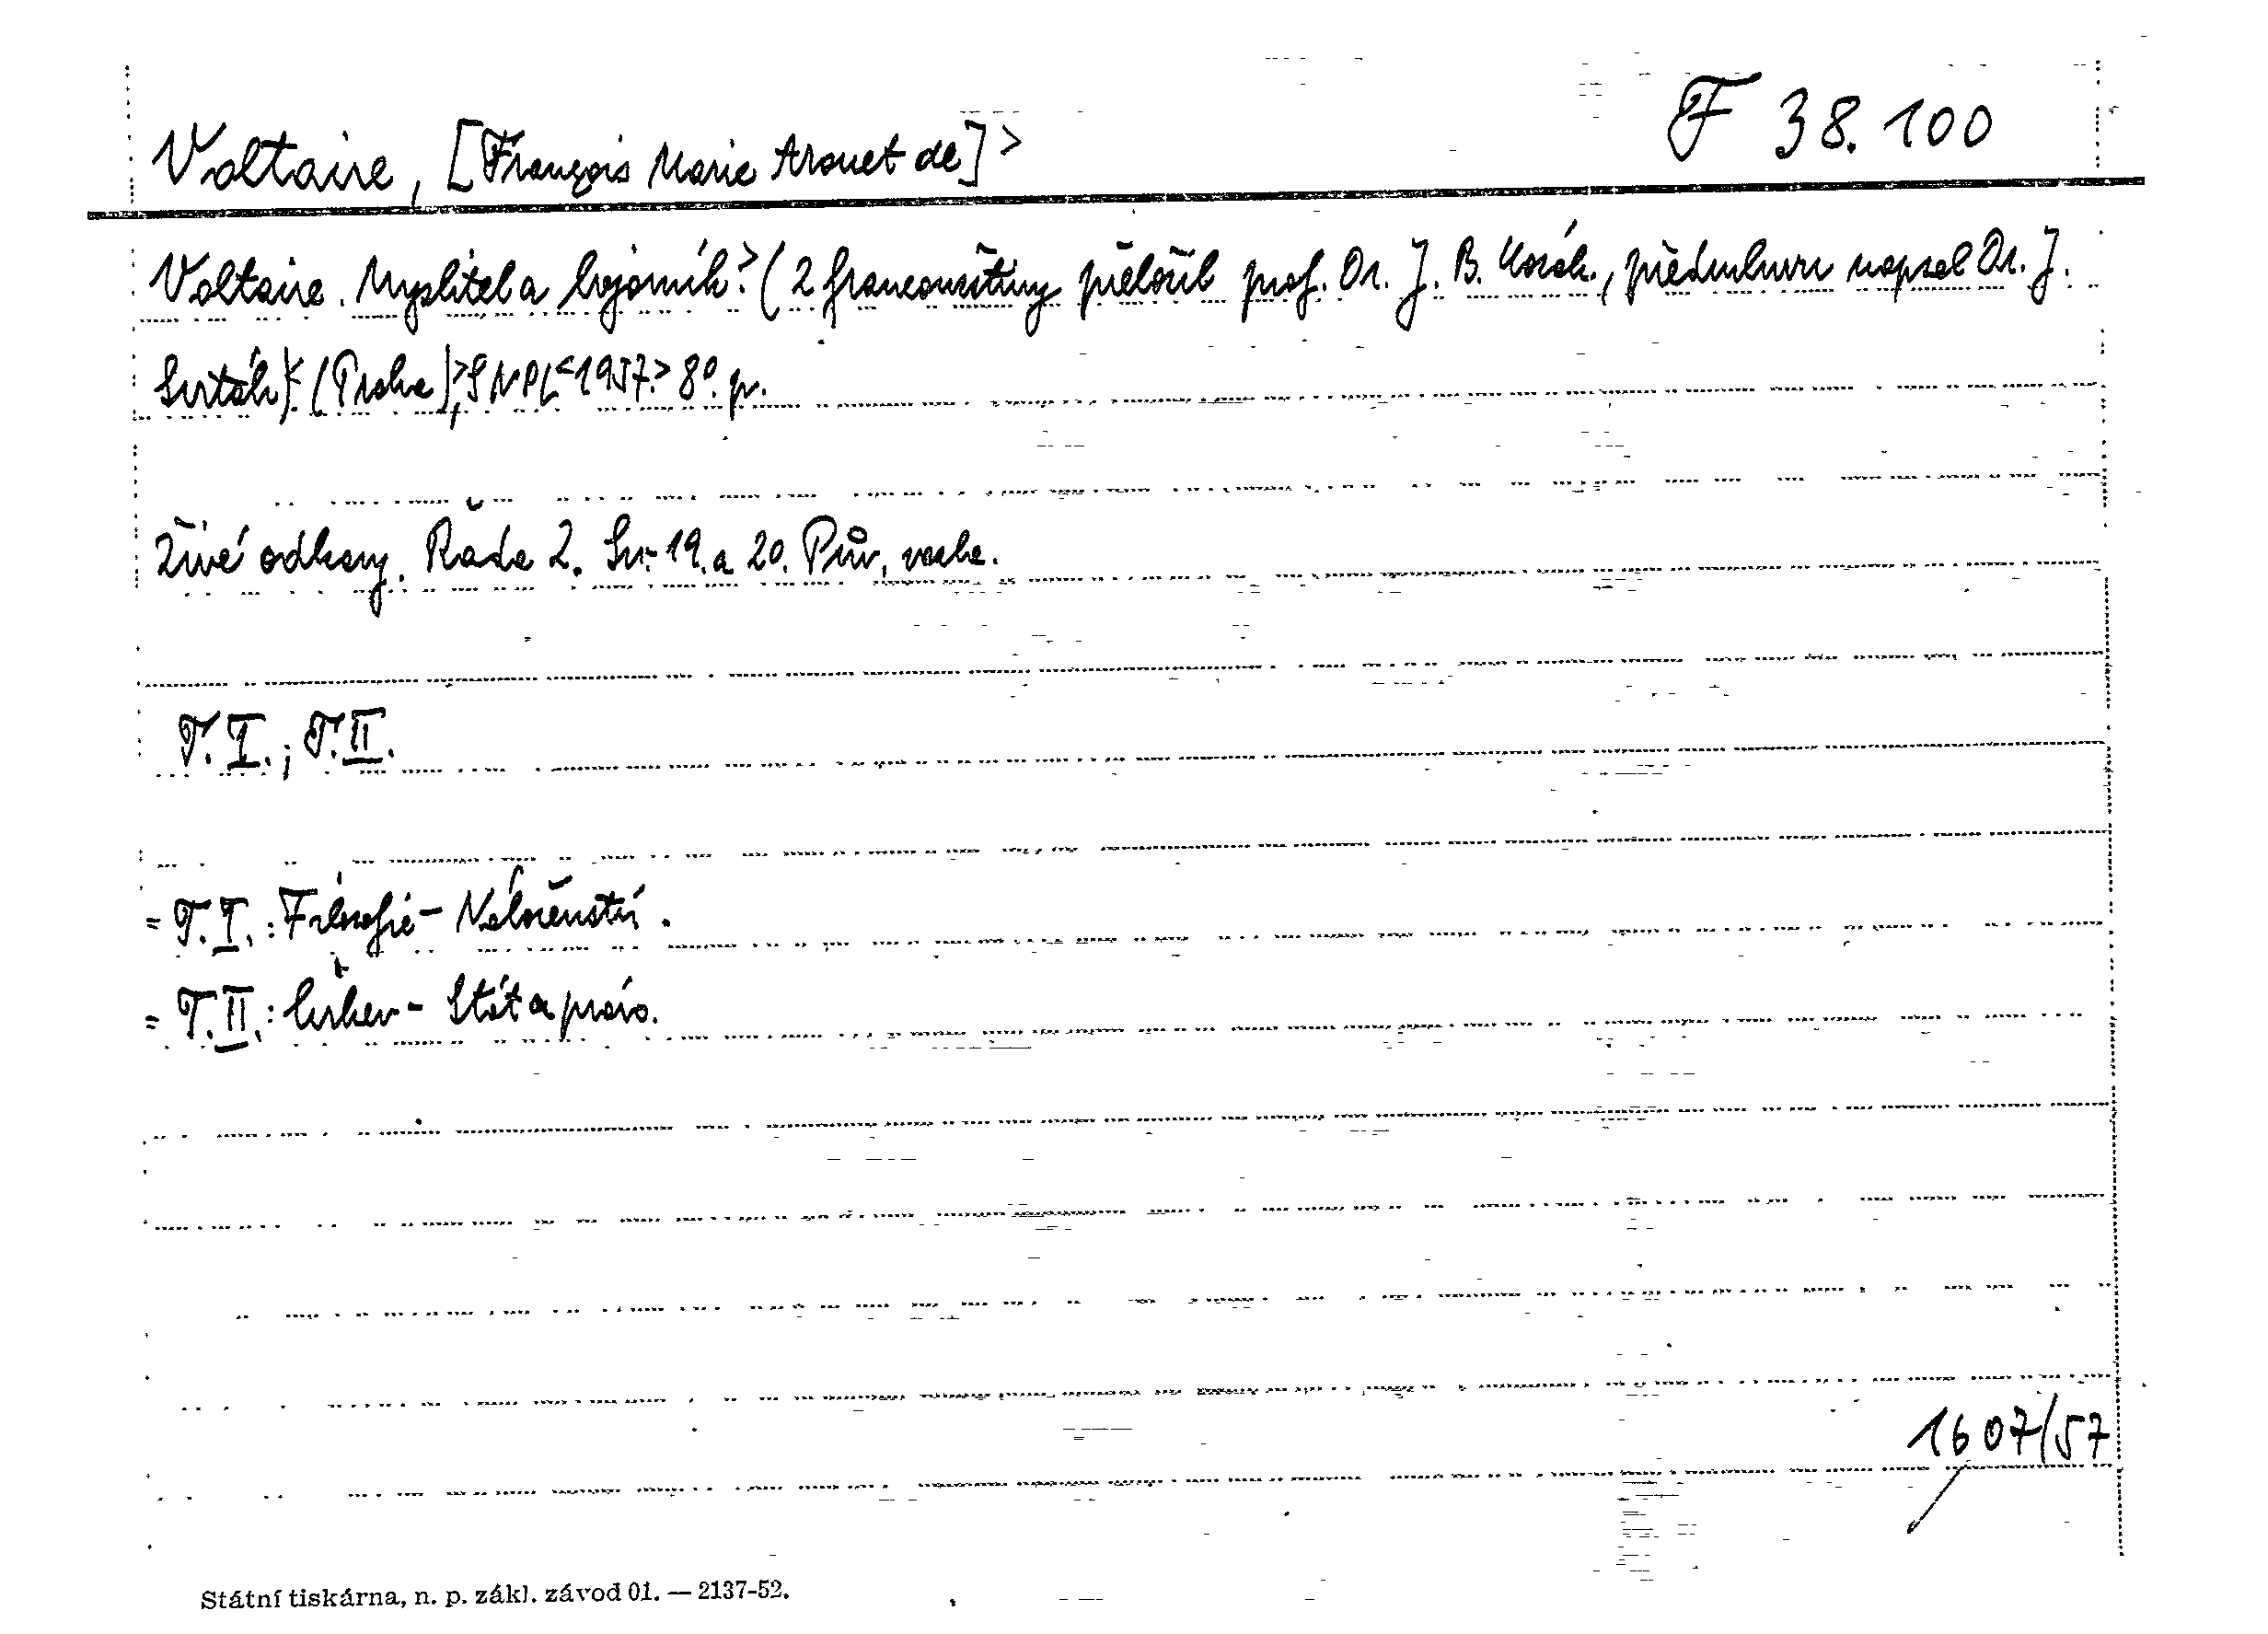 F 38.100
Voltaire, [François Marie Arouet de]>
Voltaire. Myslitel a bojovník.> (Z francouzštiny přeložil prof. Dr. J. B. Kozák, předmluvu napsal Dr. J.
Svták)< (Praha),> SNPL <1957.> 8°. p.
Živé odkazy. Řada 2. Sv. 19. a 20. Pův. vazba.
T. I.; T. II.
= T. I.: Filosofie - Náboženství.
= T. II.: Církev - Stát a právo.
1607/57
Státní tiskárna, n. p. zákl. závod 01. — 2137-52.